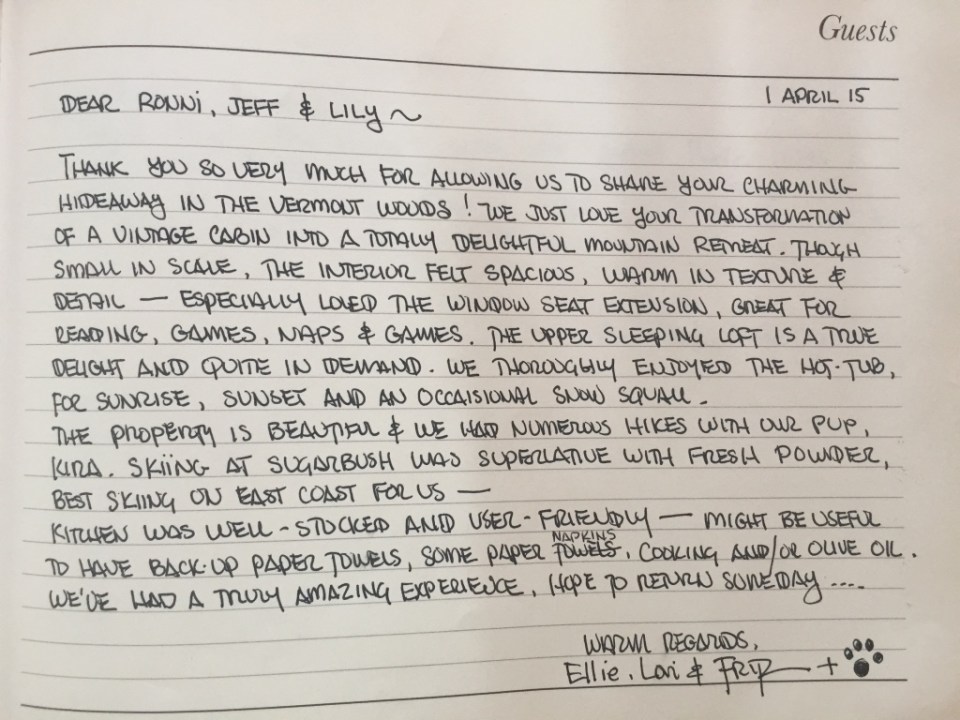 Guests
1 APRIL 15
DEAR RONNi, JEFF & LILY ~
THANK YOU SO VERY MUCH FOR ALLOWING US TO SHARE YOUR CHARMING
HIDEAWAY IN THE VERMONT WOODS! WE JUST LOVE YOUR TRANSFORMATION
OF A VINTAGE CABIN INTO A TOTALLY DELIGHTFUL MOUNTAIN RETREAT. THOUGH
SMALL IN SCALE, THE INTERIOR FELT SPACIOUS, WARM IN TEXTURE &
DETAIL — ESPECIALLY LOVED THE WINDOW SEAT EXTENSION, GREAT FOR
READING, GAMES, NAPS & GAMES. THE UPPER SLEEPING LOFT IS A TRUE
DELIGHT AND QUITE IN DEMAND. WE THOROUGHLY ENJOYED THE HOT-TUB,
FOR SUNRISE, SUNSET AND AN OCCAISIONAL SNOW SQUALL.
THE PROPERTY IS BEAUTIFUL & WE HAD NUMEROUS HIKES WITH OUR PUP,
KIRA. SKiiNG AT SUGARBUSH WAS SUPERLATIVE WITH FRESH POWDER,
BEST SKIING ON EAST COAST FOR US —
KITCHEN WAS WELL-STOCKED AND USER-FRIENDLY — MIGHT BE USEFUL
NAPKINS
TO HAVE BACK-UP PAPER TOWELS, SOME PAPER TOWELS, COOKING AND/OR OLIVE OIL.
WE'VE HAD A TRULY AMAZING EXPERIENCE, HOPE TO RETURN SOMEDAY ....
WARM REGARDS,
Ellie, Lori & FRIP — +